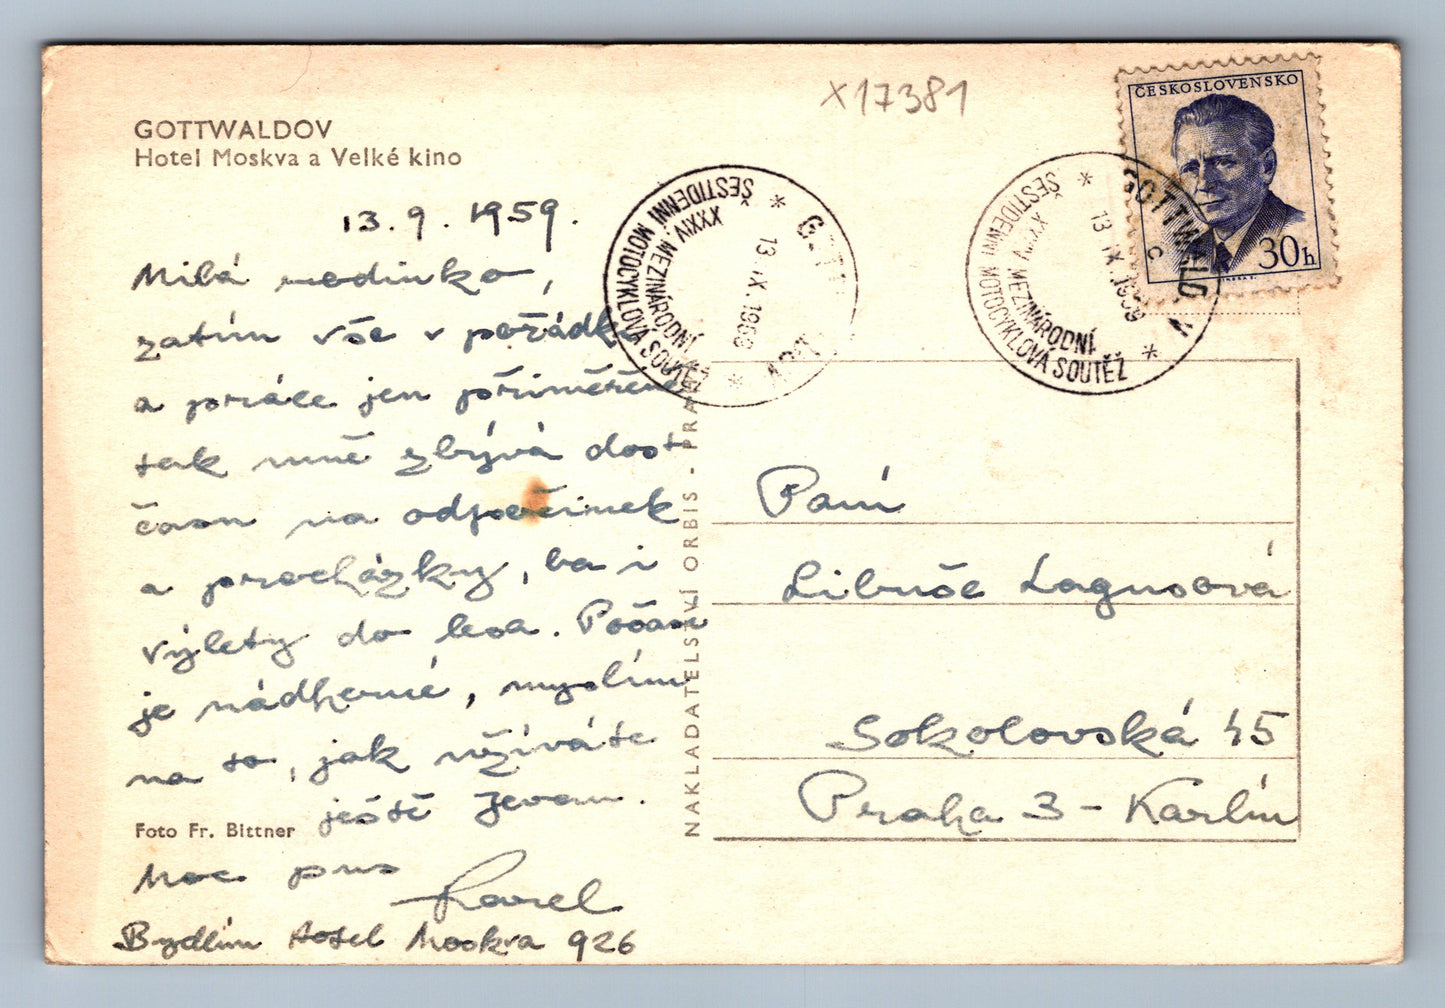 x17381
GOTTWALDOV
Hotel Moskva a Velké kino
13.9.1959.
Milá rodinko,
zatím vše v pořádku
a práce jen přiměřeně
tak mně zbývá dost
času na odpočinek
a procházky, ba i
výlety do lesa. Počasí
je nádherné, myslím
na to, jak užíváte
ještě Jevan.
Foto Fr. Bittner
Moc pus
Karel
Bydlím Hotel Moskva 926
NAKLADATELSTVÍ ORBIS - PRA
XXXIV. MEZINÁRODNÍ
ŠESTIDENNÍ MOTOCYKLOVÁ SOUTĚŽ
13.IX.1959
GOTTWALDOV
XXXIV. MEZINÁRODNÍ
ŠESTIDENNÍ MOTOCYKLOVÁ SOUTĚŽ
13.IX.1959
C
ČESKOSLOVENSKO
30h
Paní
Libuše Lagusová
Sokolovská 45
Praha 3 - Karlín